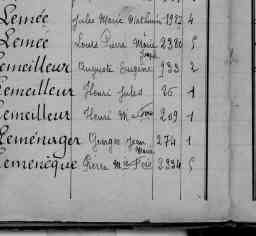 Lemée Jules Marie Mathurin 1982 4
Lemée Louis Pierre Marie Joseph 2280 5
Lemeilleur Auguste Eugène 933 2
Lemeilleur Henri Jules 26 1
Lemeilleur Henri M 209 1
Leménager Georges Jean Marie 274 1
Lemenèque Pierre Mie 2234 5